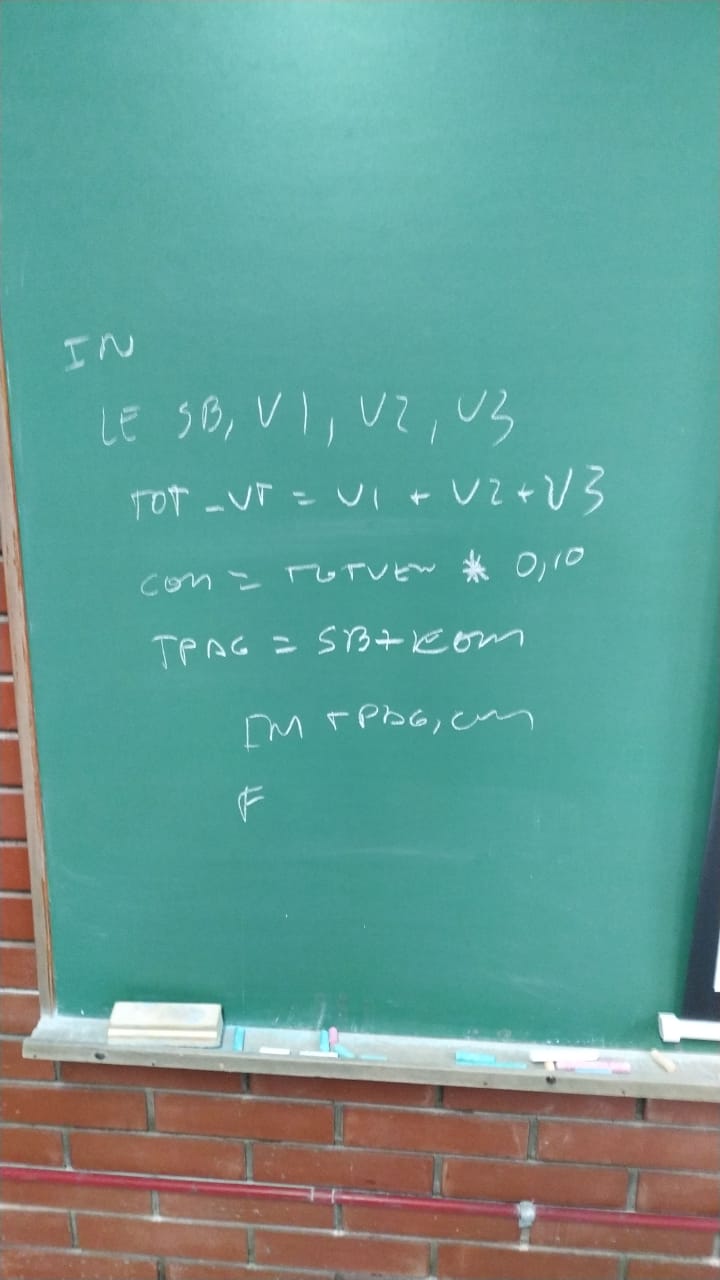 IN
LE SB, V1, V2, V3
TOT_VT = V1 + V2 + V3
COM = TOTVEN * 0,10
TPAG = SB + COM
IM TPAG, com
F